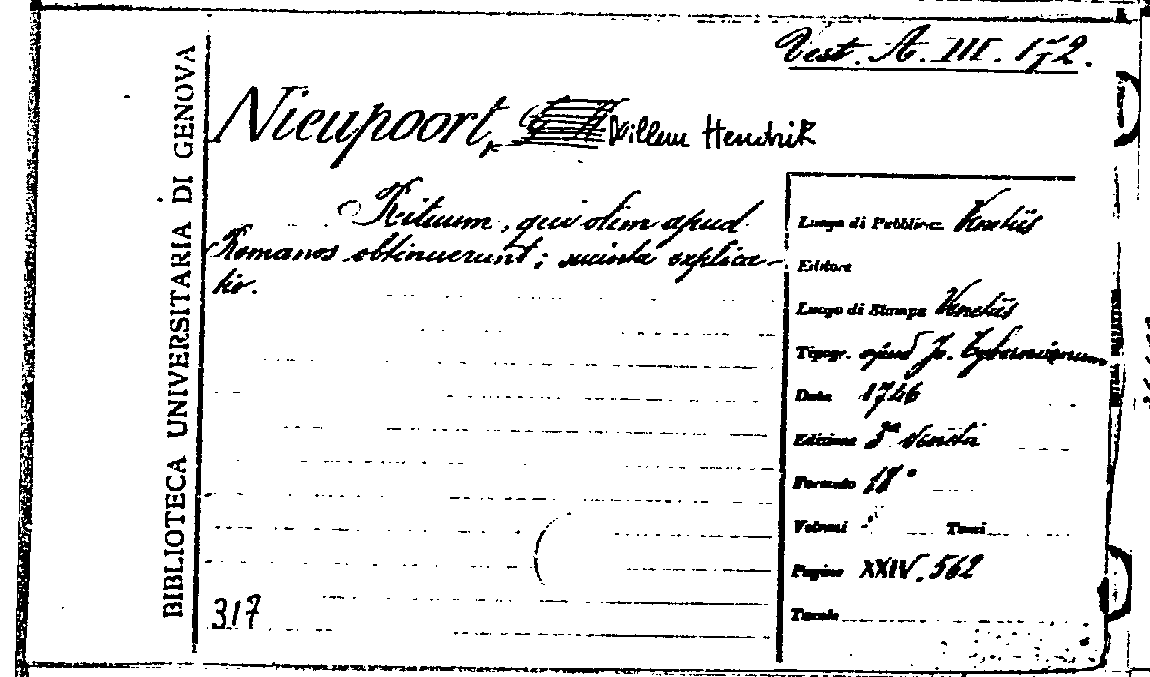 Vest. A. III. 172.
BIBLIOTECA UNIVERSITARIA DI GENOVA
Nieupoort, Willem Hendrik
Rituum, qui olim apud
Romanos obtinuerunt; succinta explica-
tio.
Luogo di Pubblic. Venetiis
Editore
Luogo di Stampa Venetiis
Tipogr. apud Jo.
Data 1746
Edizione 3ª Veneta
Formato 18°
Volumi Tomi
Pagine XXIV. 562
Tavole
317